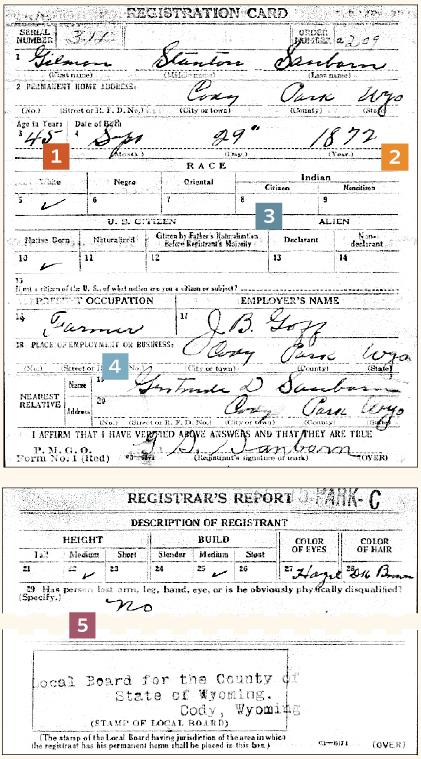 REGISTRATION CARD
SERIAL NUMBER
ORDER NUMBER
1 Gilmon Stanton Sanborn
(First name) (Middle name) (Last name)
2 PERMANENT HOME ADDRESS:
Cody Park Wyo
(No.) (Street or R. F. D. No.) (City or town) (County) (State)
Age in Years Date of Birth
3 45 4 Sept 29" 1872
1 (Month.) (Day.) (Year.) 2
RACE
White Negro Oriental Indian
Citizen Noncitizen
5 ✓ 6 7 8 9
3
U. S. CITIZEN ALIEN
Native Born Naturalized Citizen by Father's Naturalization Before Registrant's Majority Declarant Non-declarant
10 ✓ 11 12 13 14
15
If not a citizen of the U. S., of what nation are you a citizen or subject?
PRESENT OCCUPATION EMPLOYER'S NAME
16 Farmer 17 J. B. Goff
18 PLACE OF EMPLOYMENT OR BUSINESS:
Cody Park Wyo
(No.) (Street or R No.) (City or town) (County) (State)
4
NEAREST RELATIVE Name 19 Gertrude D Sanborn
Address 20 Cody Park Wyo
(No.) (Street or R. F. D. No.) (City or town) (County) (State)
I AFFIRM THAT I HAVE VERIFIED ABOVE ANSWERS AND THAT THEY ARE TRUE
P. M. G. O.
Form No. 1 (Red) G. S. Sanborn
(Registrant's signature or mark) (OVER)
REGISTRAR'S REPORT PARK-C
DESCRIPTION OF REGISTRANT
HEIGHT BUILD COLOR OF EYES COLOR OF HAIR
Tall Medium Short Slender Medium Stout
21 22 ✓ 23 24 25 ✓ 26 27 Hazel 28 Dk Brown
29 Has person lost arm, leg, hand, eye, or is he obviously physically disqualified?
(Specify.) No
5
Local Board for the County of
State of Wyoming.
Cody, Wyoming
(STAMP OF LOCAL BOARD)
(The stamp of the Local Board having jurisdiction of the area in which
the registrant has his permanent home shall be placed in this box.)
(OVER)